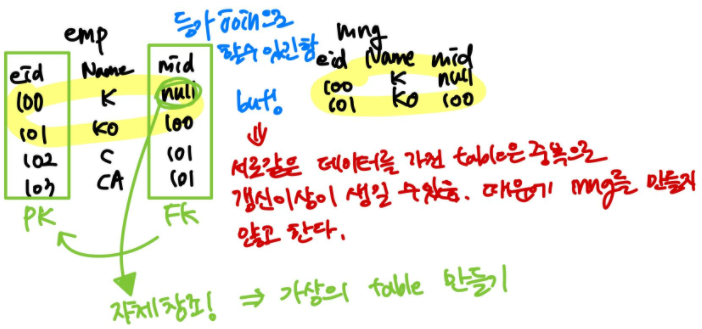 emp
eid Name mid
100 K null
101 KO 100
102 C 101
103 CA 101
PK FK
등가 Join으로
할수 있긴함
but!
mng
eid Name mid
100 K null
101 KO 100
서로같은 데이터를 가진 table은 중복으로
갱신이상이 생길 수 있음. 때문에 mng를 만들지
않고 한다.
자체참조! ⇒ 가상의 table 만들기